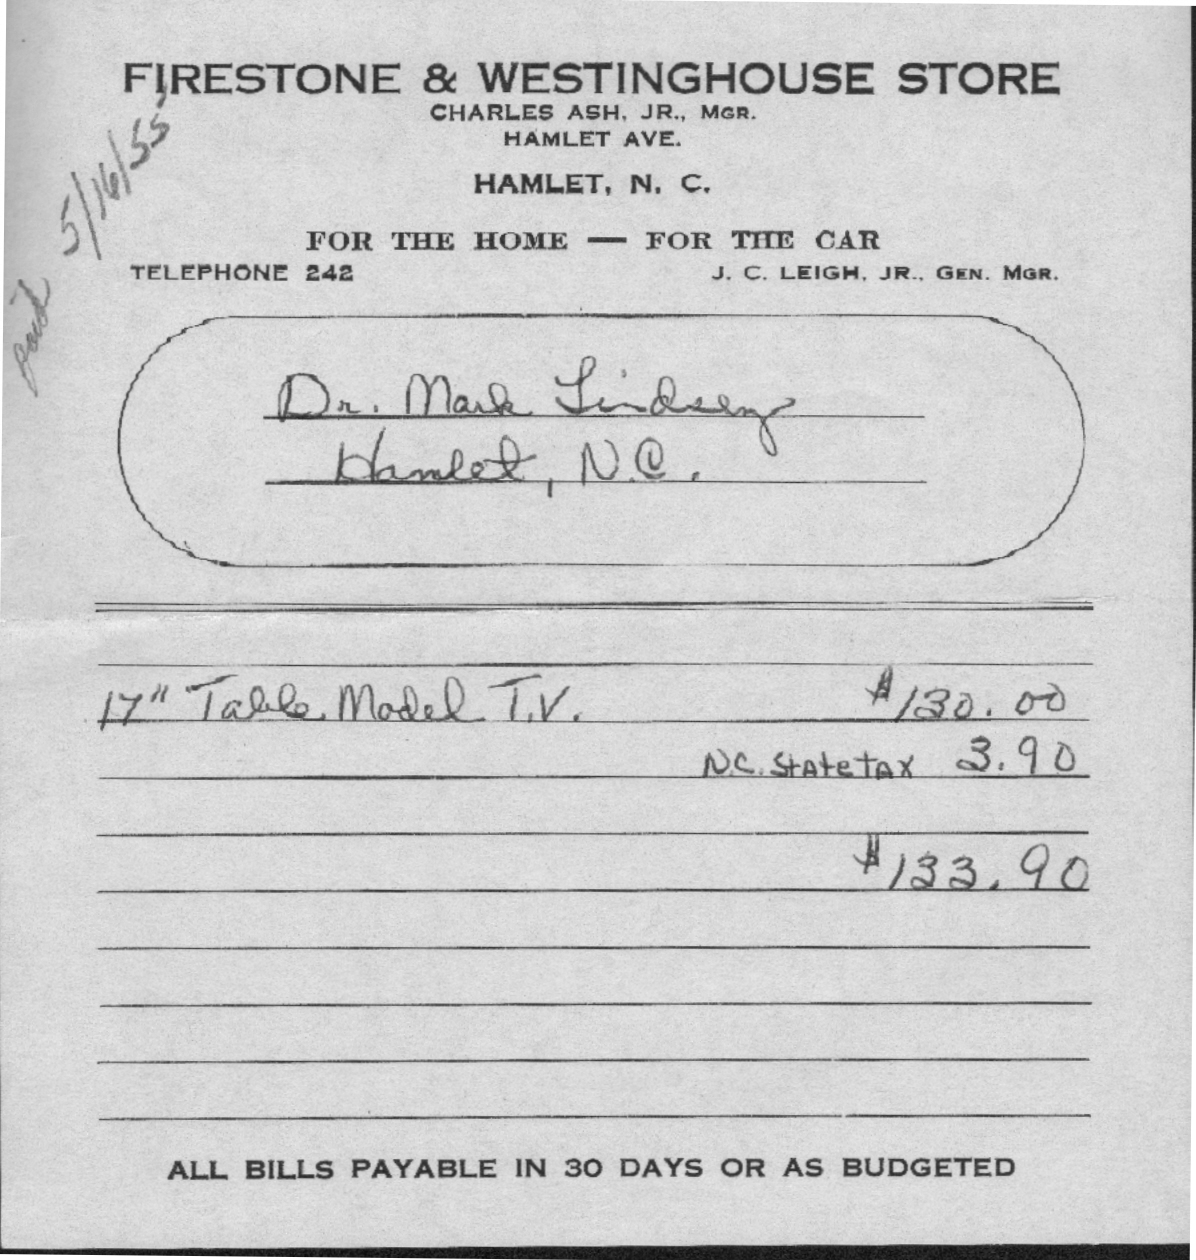 FIRESTONE & WESTINGHOUSE STORE
CHARLES ASH, JR., MGR.
HAMLET AVE.
HAMLET, N. C.
FOR THE HOME — FOR THE CAR
TELEPHONE 242 J. C. LEIGH, JR., GEN. MGR.
paid 5/16/55
Dr. Mark Lindsey
Hamlet, N.C.
17" Table Model T.V. $130.00
N.C. State tax 3.90
$133.90
ALL BILLS PAYABLE IN 30 DAYS OR AS BUDGETED